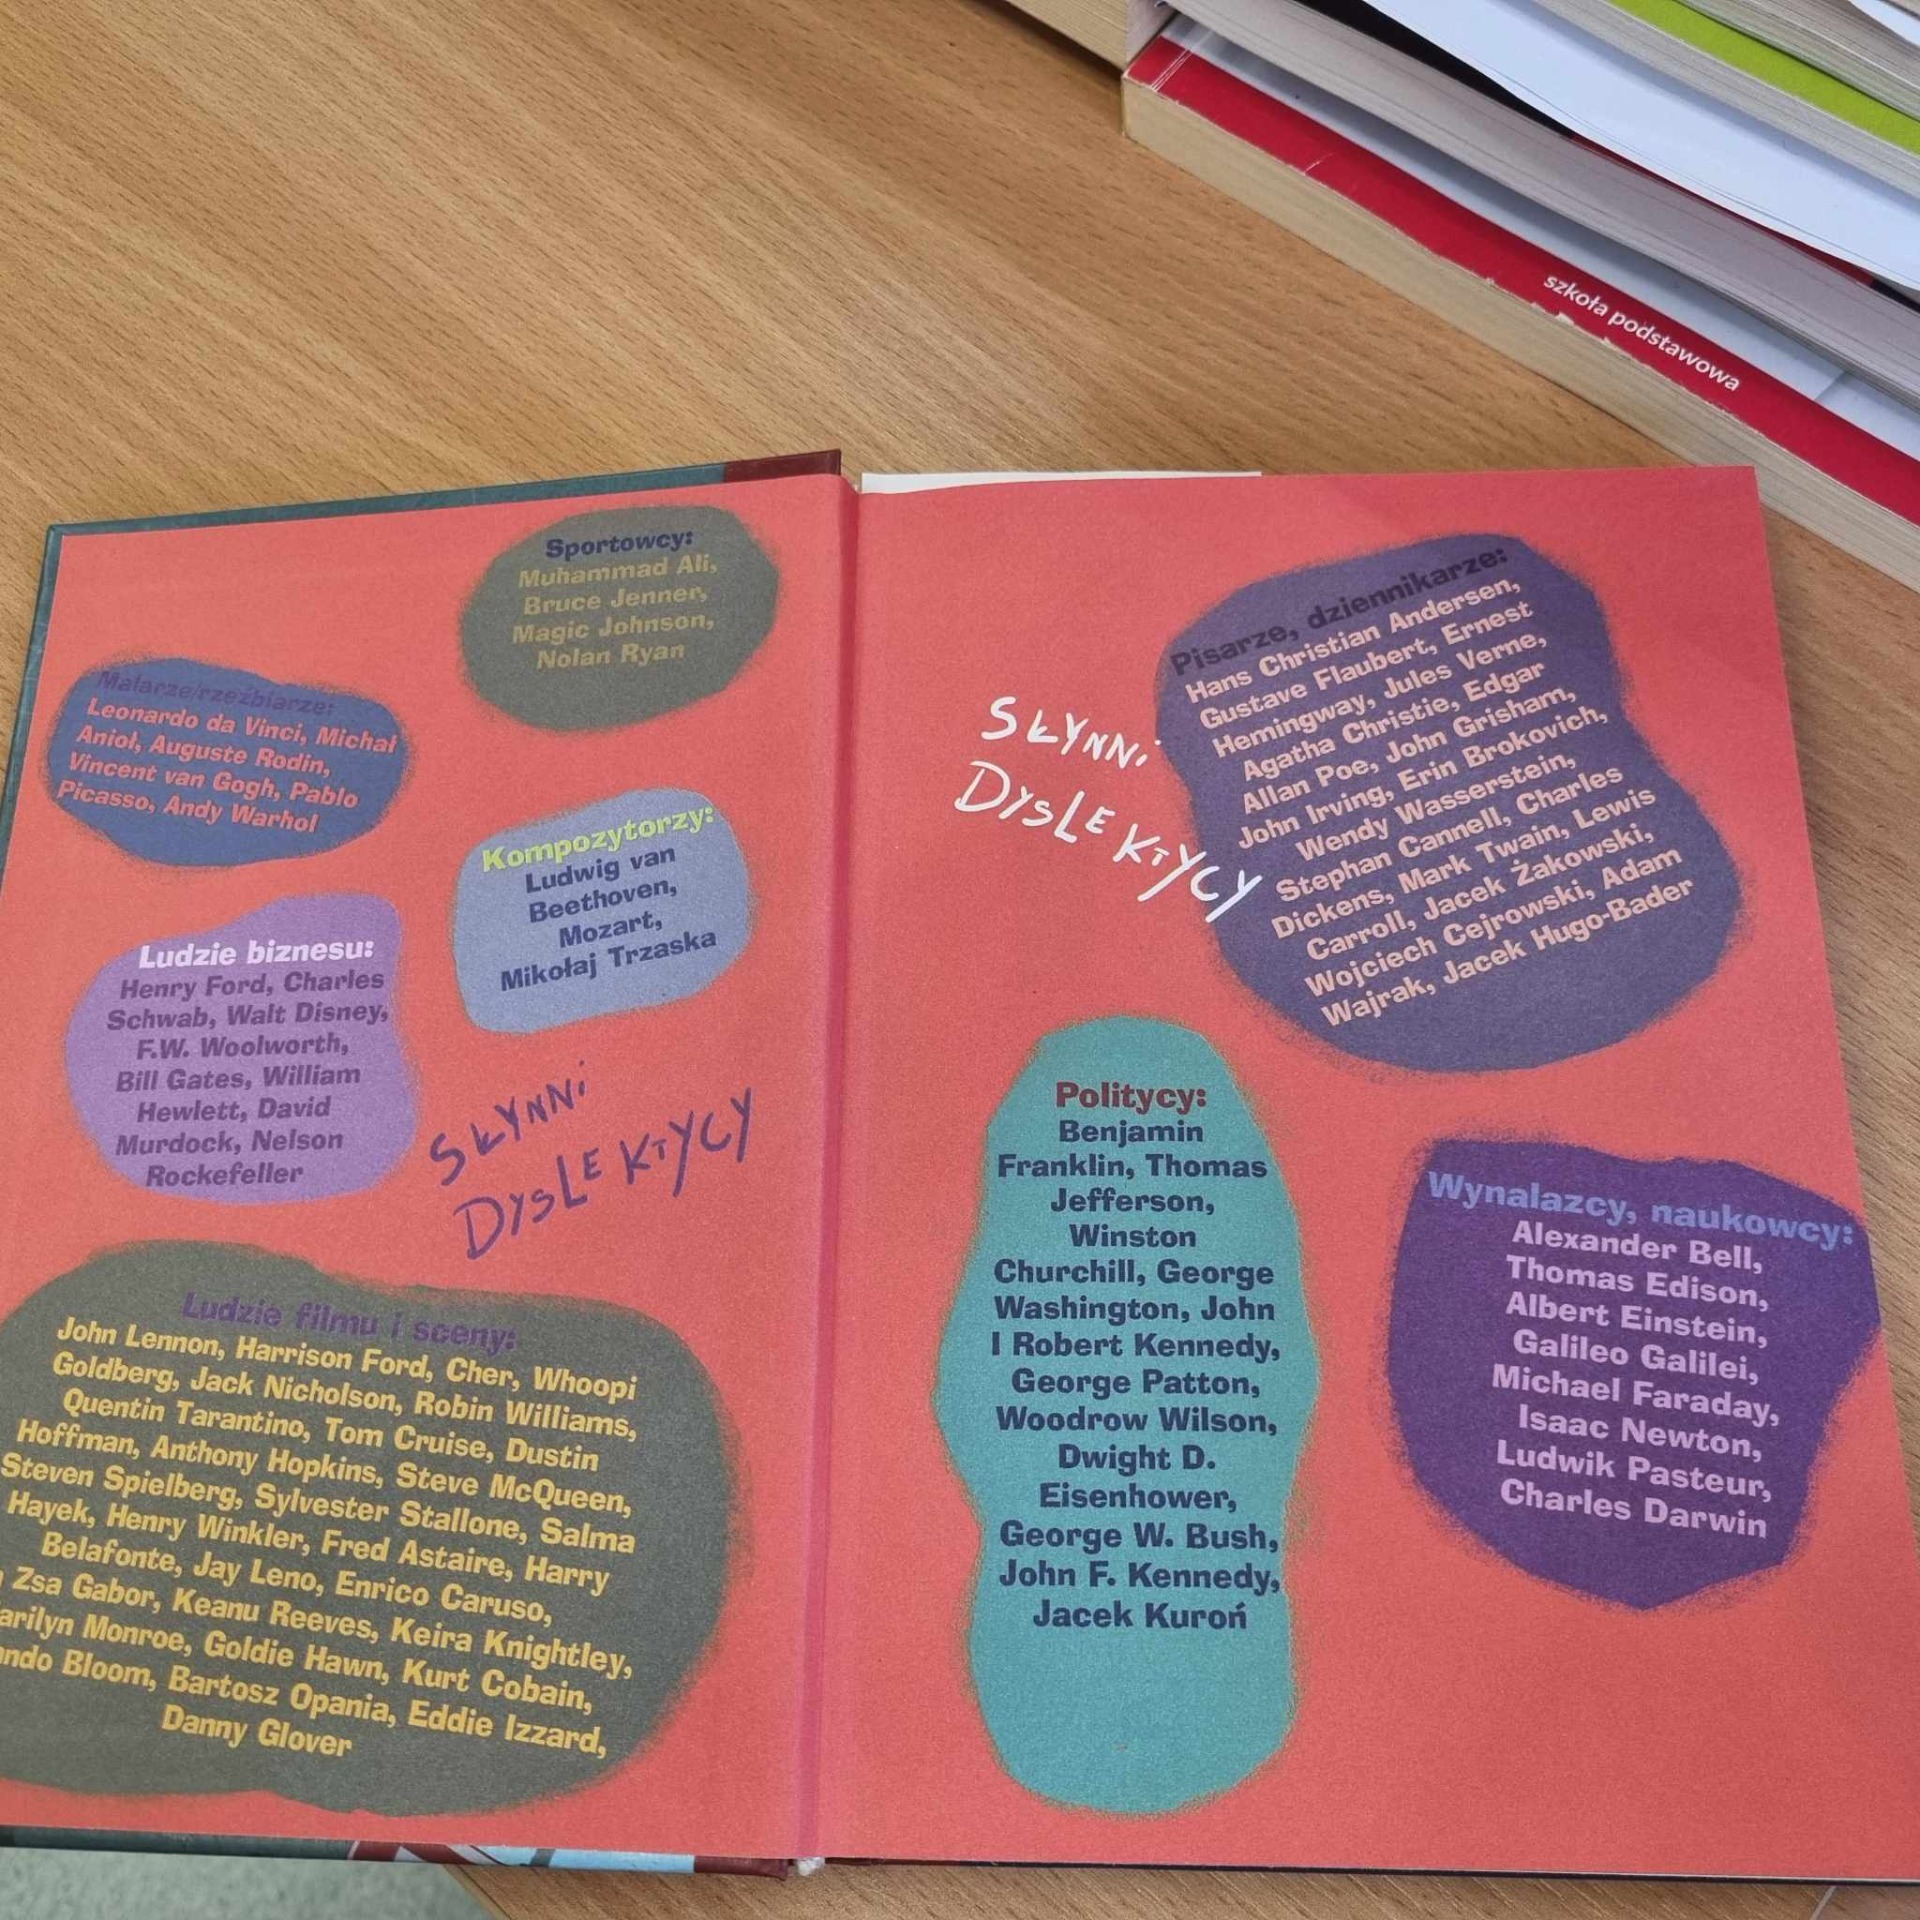 szkoła podstawowa
Sportowcy:
Muhammad Ali,
Bruce Jenner,
Magic Johnson,
Nolan Ryan
Malarze/rzeźbiarze:
Leonardo da Vinci, Michał
Anioł, Auguste Rodin,
Vincent van Gogh, Pablo
Picasso, Andy Warhol
Kompozytorzy:
Ludwig van
Beethoven,
Mozart,
Mikołaj Trzaska
Ludzie biznesu:
Henry Ford, Charles
Schwab, Walt Disney,
F.W. Woolworth,
Bill Gates, William
Hewlett, David
Murdock, Nelson
Rockefeller
SŁYNNi
DYSLEKTYCY
Ludzie filmu i sceny:
John Lennon, Harrison Ford, Cher, Whoopi
Goldberg, Jack Nicholson, Robin Williams,
Quentin Tarantino, Tom Cruise, Dustin
Hoffman, Anthony Hopkins, Steve McQueen,
Steven Spielberg, Sylvester Stallone, Salma
Hayek, Henry Winkler, Fred Astaire, Harry
Belafonte, Jay Leno, Enrico Caruso,
Zsa Gabor, Keanu Reeves, Keira Knightley,
arilyn Monroe, Goldie Hawn, Kurt Cobain,
ndo Bloom, Bartosz Opania, Eddie Izzard,
Danny Glover
SŁYNNi
DYSLEKTYCY
Pisarze, dziennikarze:
Hans Christian Andersen,
Gustave Flaubert, Ernest
Hemingway, Jules Verne,
Agatha Christie, Edgar
Allan Poe, John Grisham,
John Irving, Erin Brokovich,
Wendy Wasserstein,
Stephan Cannell, Charles
Dickens, Mark Twain, Lewis
Carroll, Jacek Żakowski,
Wojciech Cejrowski, Adam
Wajrak, Jacek Hugo-Bader
Politycy:
Benjamin
Franklin, Thomas
Jefferson,
Winston
Churchill, George
Washington, John
I Robert Kennedy,
George Patton,
Woodrow Wilson,
Dwight D.
Eisenhower,
George W. Bush,
John F. Kennedy,
Jacek Kuroń
Wynalazcy, naukowcy:
Alexander Bell,
Thomas Edison,
Albert Einstein,
Galileo Galilei,
Michael Faraday,
Isaac Newton,
Ludwik Pasteur,
Charles Darwin